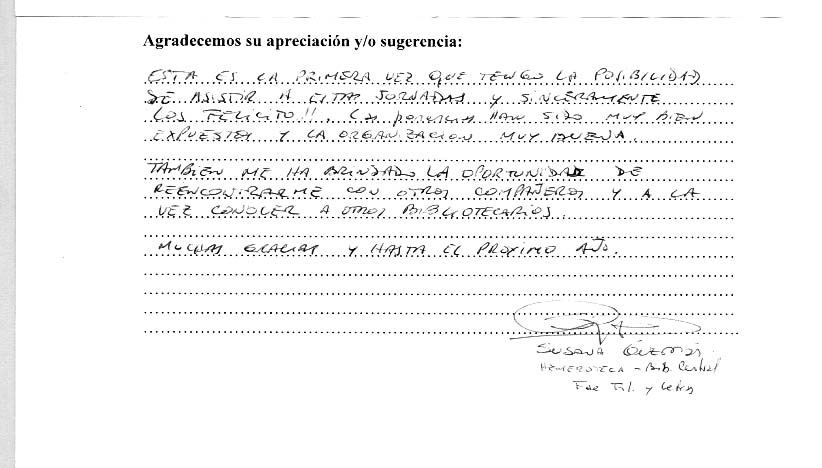 Agradecemos su apreciación y/o sugerencia:
ESTA ES LA PRIMERA VEZ QUE TENGO LA POSIBILIDAD
DE ASISTIR A ESTAS JORNADAS Y SINCERAMENTE
LOS FELICITO!!. LAS ponencias HAN SIDO MUY BIEN
EXPUESTAS Y LA ORGANIZACION MUY BUENA.
TAMBIEN ME HA BRINDADO LA OPORTUNIDAD DE
REENCONTRARME CON OTROS COMPAÑEROS Y A LA
VEZ CONOCER A OTROS BIBLIOTECARIOS.
MUCHAS GRACIAS Y HASTA EL PROXIMO AÑO.
SUSANA
HEMEROTECA - Bib. Central
Fac Fil. y Letras